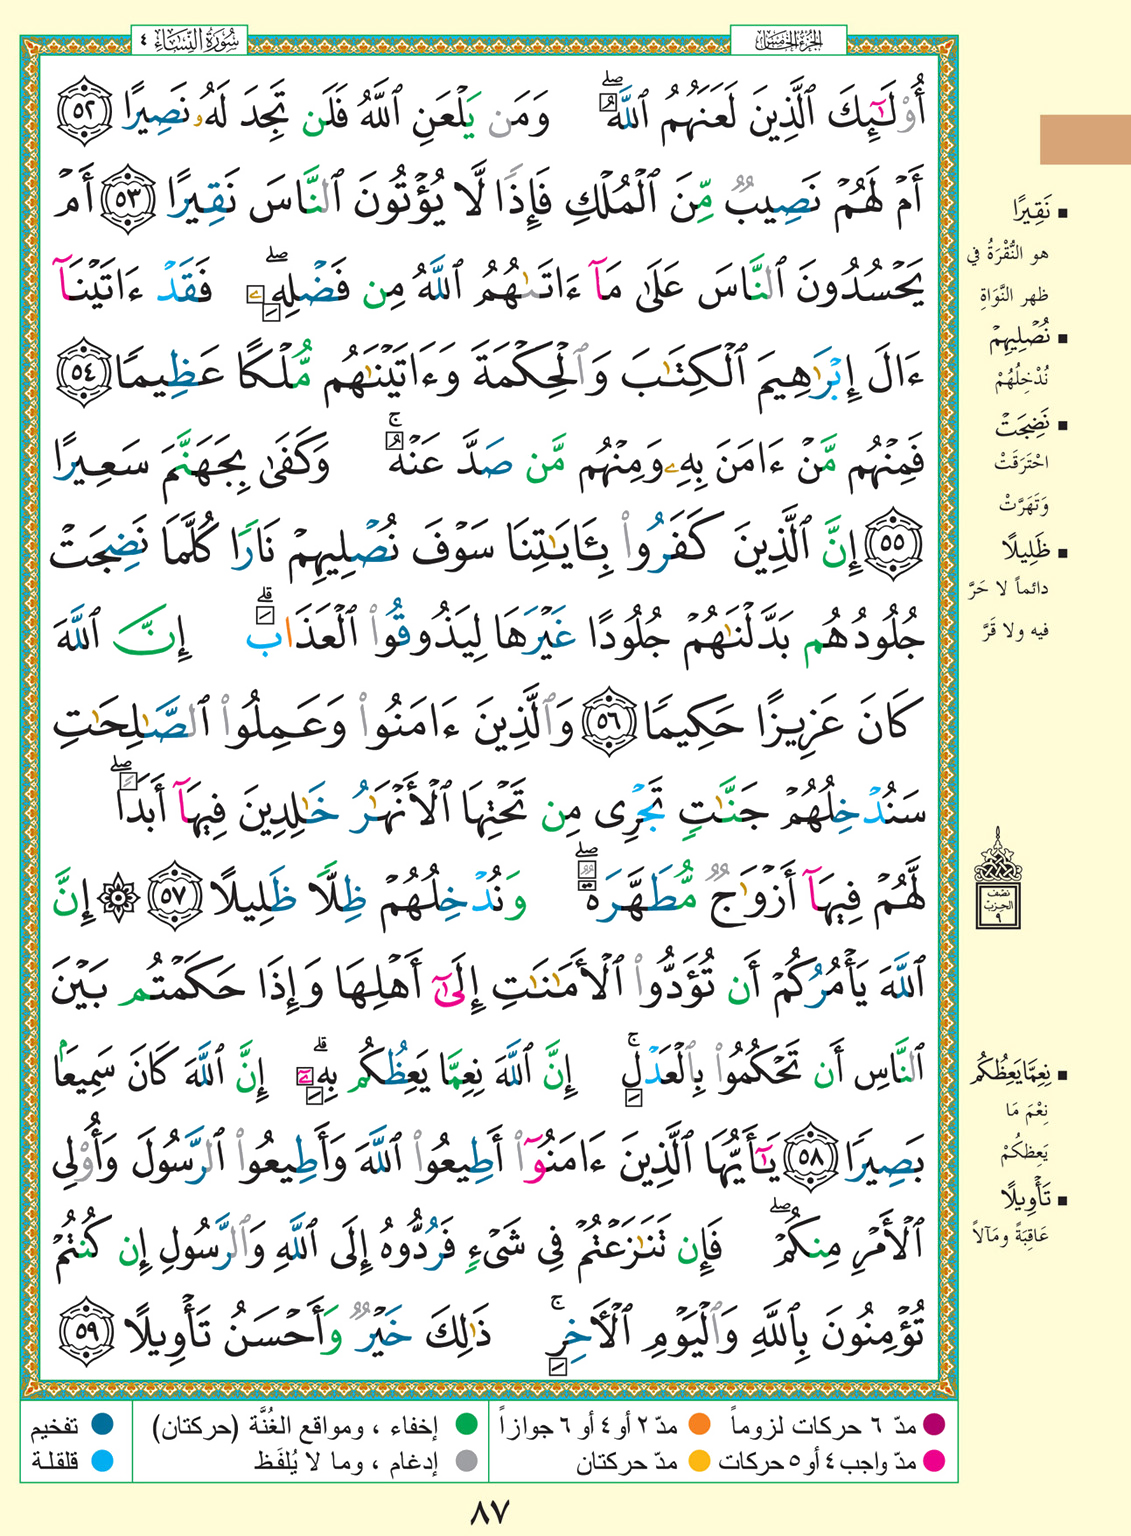 سُورَةُ النِّسَاءِ ٤
الجُزْءُ الخَامِسُ
أُوْلَـٰٓئِكَ ٱلَّذِينَ لَعَنَهُمُ ٱللَّهُۖ وَمَن يَلْعَنِ ٱللَّهُ فَلَن تَجِدَ لَهُۥ نَصِيرًا ٥٢
أَمْ لَهُمْ نَصِيبٌ مِّنَ ٱلْمُلْكِ فَإِذًا لَّا يُؤْتُونَ ٱلنَّاسَ نَقِيرًا ٥٣ أَمْ
يَحْسُدُونَ ٱلنَّاسَ عَلَىٰ مَآ ءَاتَىٰهُمُ ٱللَّهُ مِن فَضْلِهِۦۖ فَقَدْ ءَاتَيْنَآ
ءَالَ إِبْرَٰهِيمَ ٱلْكِتَـٰبَ وَٱلْحِكْمَةَ وَءَاتَيْنَـٰهُم مُّلْكًا عَظِيمًا ٥٤
فَمِنْهُم مَّنْ ءَامَنَ بِهِۦ وَمِنْهُم مَّن صَدَّ عَنْهُۚ وَكَفَىٰ بِجَهَنَّمَ سَعِيرًا
٥٥ إِنَّ ٱلَّذِينَ كَفَرُوا۟ بِـَٔايَـٰتِنَا سَوْفَ نُصْلِيهِمْ نَارًا كُلَّمَا نَضِجَتْ
جُلُودُهُم بَدَّلْنَـٰهُمْ جُلُودًا غَيْرَهَا لِيَذُوقُوا۟ ٱلْعَذَابَۗ إِنَّ ٱللَّهَ
كَانَ عَزِيزًا حَكِيمًا ٥٦ وَٱلَّذِينَ ءَامَنُوا۟ وَعَمِلُوا۟ ٱلصَّـٰلِحَـٰتِ
سَنُدْخِلُهُمْ جَنَّـٰتٍ تَجْرِى مِن تَحْتِهَا ٱلْأَنْهَـٰرُ خَـٰلِدِينَ فِيهَآ أَبَدًاۖ
لَّهُمْ فِيهَآ أَزْوَٰجٌ مُّطَهَّرَةٌۖ وَنُدْخِلُهُمْ ظِلًّا ظَلِيلًا ٥٧ ۞ إِنَّ
ٱللَّهَ يَأْمُرُكُمْ أَن تُؤَدُّوا۟ ٱلْأَمَـٰنَـٰتِ إِلَىٰٓ أَهْلِهَا وَإِذَا حَكَمْتُم بَيْنَ
ٱلنَّاسِ أَن تَحْكُمُوا۟ بِٱلْعَدْلِۚ إِنَّ ٱللَّهَ نِعِمَّا يَعِظُكُم بِهِۦٓۗ إِنَّ ٱللَّهَ كَانَ سَمِيعًۢا
بَصِيرًا ٥٨ يَـٰٓأَيُّهَا ٱلَّذِينَ ءَامَنُوٓا۟ أَطِيعُوا۟ ٱللَّهَ وَأَطِيعُوا۟ ٱلرَّسُولَ وَأُو۟لِى
ٱلْأَمْرِ مِنكُمْۖ فَإِن تَنَـٰزَعْتُمْ فِى شَىْءٍ فَرُدُّوهُ إِلَى ٱللَّهِ وَٱلرَّسُولِ إِن كُنتُمْ
تُؤْمِنُونَ بِٱللَّهِ وَٱلْيَوْمِ ٱلْـَٔاخِرِۚ ذَٰلِكَ خَيْرٌ وَأَحْسَنُ تَأْوِيلًا ٥٩
■ نَقِيرًا
هو النُّقْرَةُ في
ظهر النَّوَاةِ
■ نُصْلِيهِمْ
نُدْخِلُهُمْ
■ نَضِجَتْ
احْتَرَقَتْ
وَتَهَرَّتْ
■ ظَلِيلًا
دائماً لا حَرَّ
فيه ولا قَرَّ
نصف
الحزب
٩
■ نِعِمَّا يَعِظُكُم
نِعْمَ مَا
يَعِظكُمْ
■ تَأْوِيلًا
عَاقِبَةً ومَآلاً
مدّ ٦ حركات لزوماً ● مدّ ٢ أو ٤ أو ٦ جوازاً ● إخفاء ، ومواقع الغُنَّة (حركتان) ● تفخيم
مدّ واجب ٤ أو ٥ حركات ● مدّ حركتان ● إدغام ، وما لا يُلفَظ ● قلقلة
٨٧